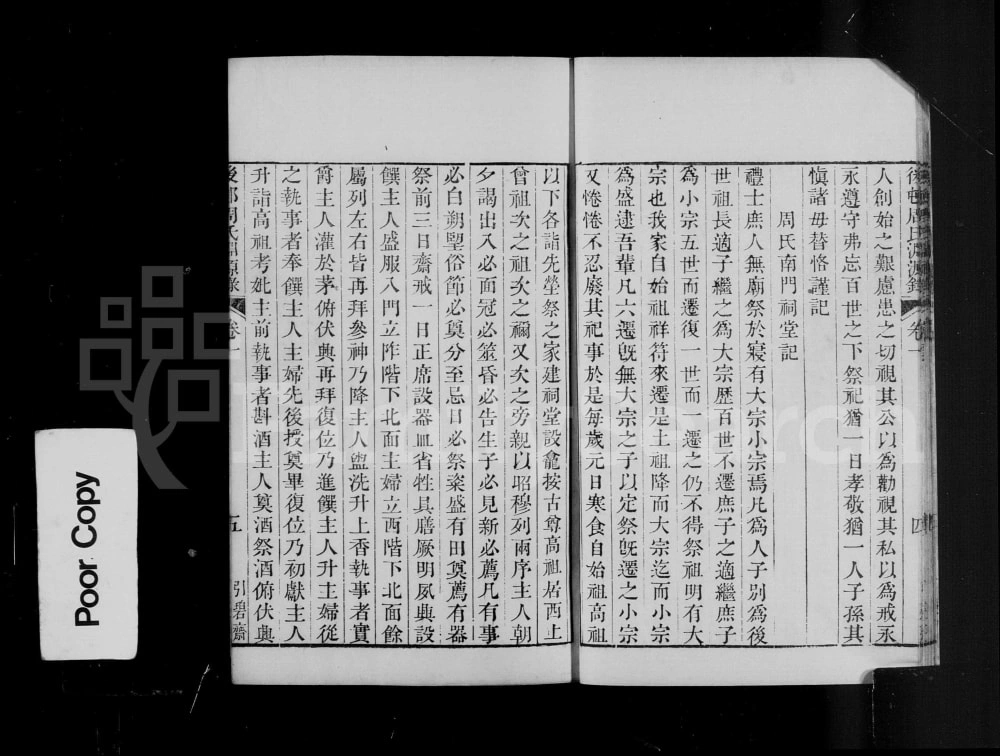 人創始之艱慮患之切視其公以為勸視其私以為戒永
永遵守弗忘百世之下祭祀猶一日孝敬猶一人子孫其
愼諸毋替恪謹記
周氏南門祠堂記
禮士庶人無廟祭於寢有大宗小宗焉凡為人子別為後
世祖長適子繼之為大宗歷百世不遷庶子之適繼庶子
為小宗五世而遷復一世而一遷之仍不得祭祖明有大
宗也我家自始祖祥符來遷是土祖降而大宗迄而小宗
為盛逮吾輩凡六遷旣無大宗之子以定祭旣遷之小宗
又惓惓不忍廢其祀事於是每歲元日寒食自始祖高祖
以下各詣先塋祭之家建祠堂設龕按古尊高祖居西上
曾祖次之祖次之禰又次之旁親以昭穆列兩序主人朝
夕謁出入必面冠必筮昏必告生子必見新必薦凡有事
必白朔望俗節必奠分至忌日必祭粢盛有田奠薦有器
祭前三日齋戒一日正席設器皿省牲具膳厥明夙興設
饌主人盛服入門立阼階下北面主婦立西階下北面餘
屬列左右皆再拜參神乃降主人盥洗升上香執事者實
爵主人灌於茅俯伏興再拜復位乃進饌主人升主婦從
之執事者奉饌主人主婦先後授奠畢復位乃初獻主人
升詣高祖考妣主前執事者斟酒主人奠酒祭酒俯伏興
卷一
四
卷一
五
引碧齋
Poor Copy